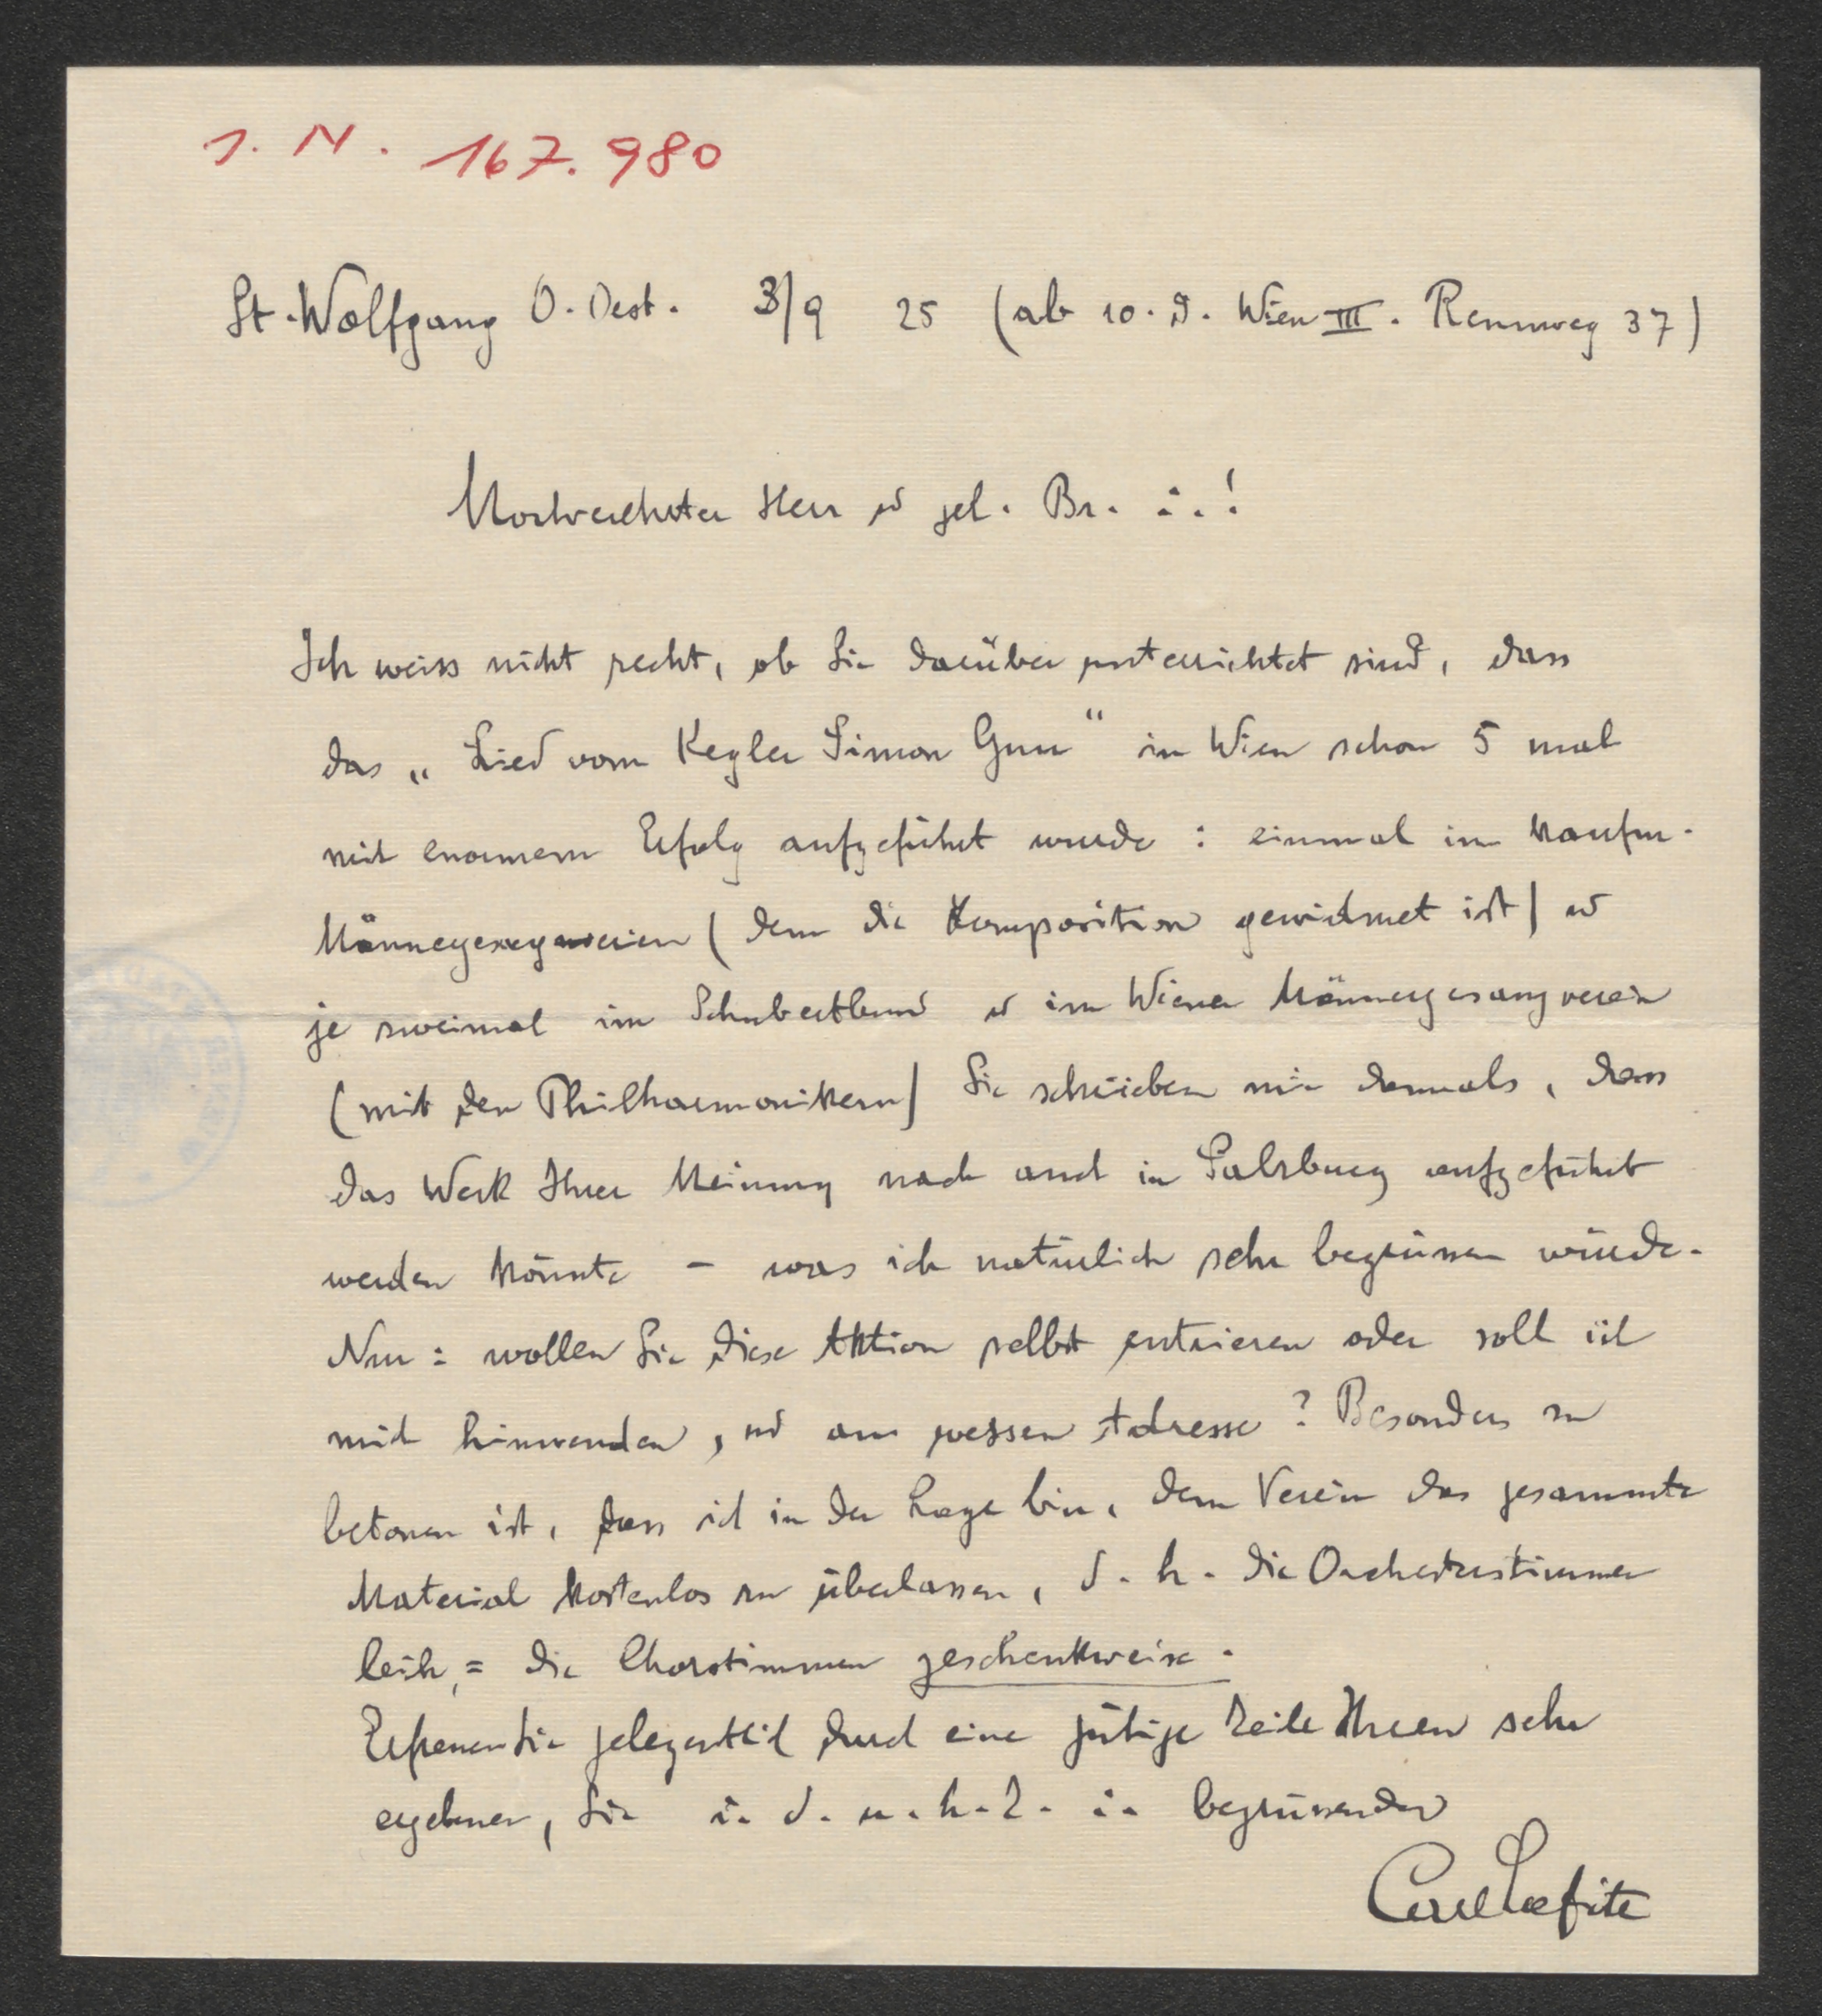 I. N. 167.980
St. Wolfgang O. Oest. 3/9 25 (ab 10. d. Wien III. Rennweg 37)
Hochverehrter Herr u gel. Br. ∴!
Ich weiss nicht recht, ob Sie darüber unterrichtet sind, dass
das „Lied vom Kegler Simon Gun“ in Wien schon 5 mal
mit enormem Erfolg aufgeführt wurde : einmal im Kaufm.
Männergesangverein (dem die Komposition gewidmet ist) u
je zweimal im Schubertbund u im Wiener Männergesangverein
(mit den Philharmonikern) Sie schrieben mir damals, dass
das Werk Ihrer Meinung nach auch in Salzburg aufgeführt
werden könnte – was ich natürlich sehr begrüssen würde.
Nun : wollen Sie diese Aktion selbst entrieren oder soll ich
mich hinwenden, u an wessen Adresse? Besonders zu
betonen ist, dass ich in der Lage bin, dem Verein das gesammte
Material kostenlos zu überlassen, d. h. die Orchesterstimmen
leih,= die Chorstimmen geschenkweise.
Erfreuen Sie gelegentlich durch eine gütige Zeile Ihren sehr
ergebenen, Sie i. d. u. h. Z. ∴ begrüssenden
Carl Lafite